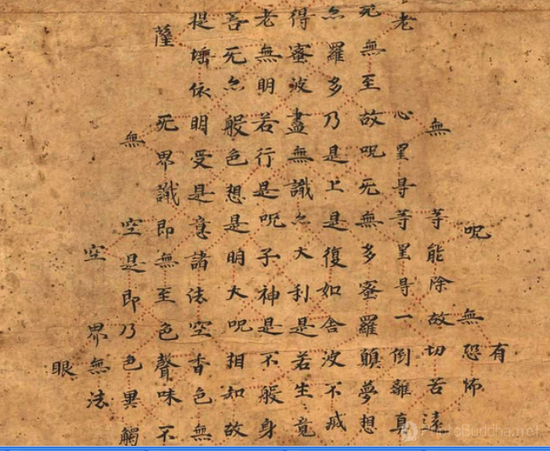 有
呪無恐怖
無等能除故切苦遠
老心罣㝵等罣㝵一倒離真
死無至故呪死無多蜜羅顛夢想
亦羅多乃是上是復如舍波不減
得蜜波盡無識亦大利是若生竟
老無明若行是呪子神是不般身
菩死亦般色想是明大呪相如故
提依明受是意諸法空香色無
薩死界識即無至色聲味不
無空是即乃色異觸
空界無法
眼